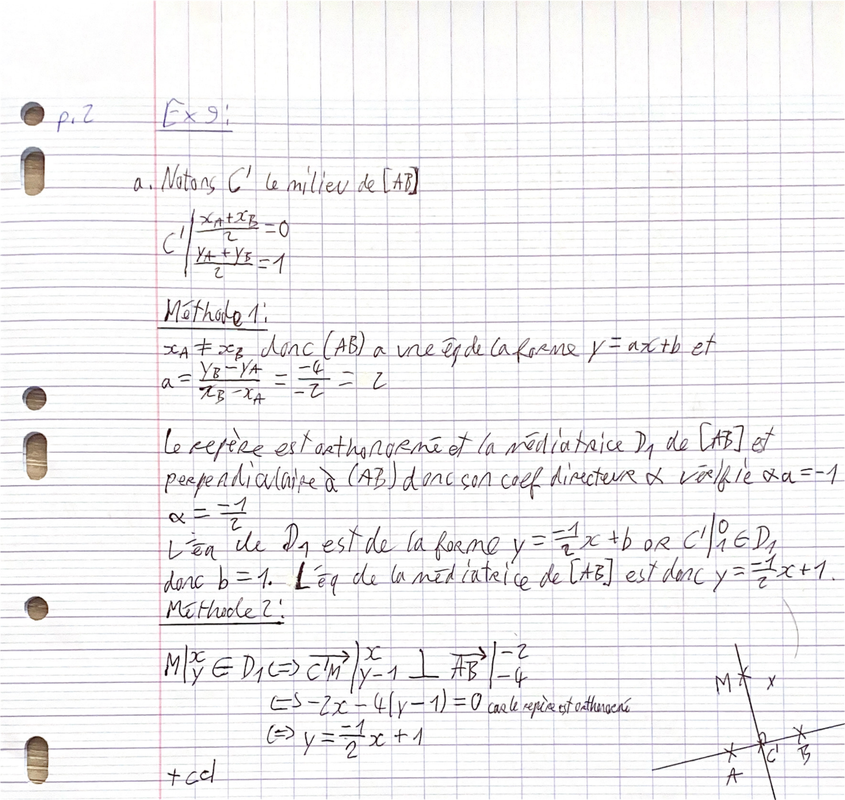 p.2 Ex 9:
a. Notons C' le milieu de [AB]
C' | (x_A + x_B)/2 = 0
(y_A + y_B)/2 = 1
Méthode 1:
x_A ≠ x_B donc (AB) a une éq de la forme y = ax + b et
a = (y_B - y_A)/(x_B - x_A) = -4/-2 = 2
Le repère est orthonormé et la médiatrice D₁ de [AB] est
perpendiculaire à (AB) donc son coef directeur α vérifie αa = -1
α = -1/2
L'éq de D₁ est de la forme y = -1/2 x + b OR C' | 0 1 ∈ D₁
donc b = 1. L'éq de la médiatrice de [AB] est donc y = -1/2 x + 1.
Méthode 2:
M | x y ∈ D₁ <=> C'M→ | x y-1 ⊥ AB→ | -2 -4
<=> -2x - 4(y - 1) = 0 car le repère est orthonormé
<=> y = -1/2 x + 1
+ ccl
M x
A C' B